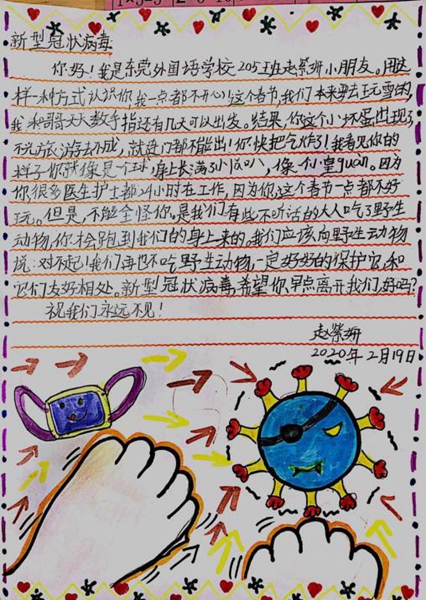 新型冠状病毒
你好！我是东莞外国语学校205班赵紫珊小朋友。用这
样一种方式认识你我一点都不开心！这个春节，我们本来要去玩雪的，
我和哥哥天天数手指还有几天可以出发。结果，你这个小坏蛋出现了
不说旅游去不成，就连门都不能出！你快把气炸了！我看见你的
样子你就像是一个球，身上长满了小，像个小皇guān。因为
你很多医生护士都24小时在工作，因为你，这个春节一点都不好
玩。但是，不能全怪你，是我们有些不听话的大人吃了野生
动物，你才会跑到我们的身上来的。我们应该向野生动物
说：对不起！我们再也不吃野生动物，一定好好的保护它，和
它们友好相处。新型冠状病毒，希望你早点离开我们好吗？
祝我们永远不见！
赵紫珊
2020年2月19日